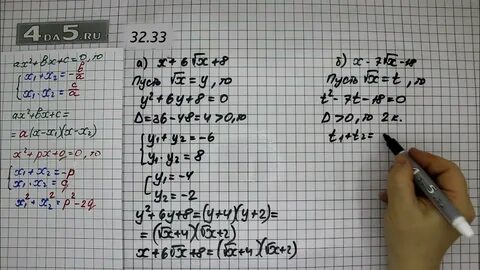 4DA5.RU
32.33
ax²+bx+c=0, то
x₁+x₂=-b/a
x₁·x₂=c/a
ax²+bx+c=
=a(x-x₁)(x-x₂)
x²+px+q=0, то
x₁+x₂=-p
x₁·x₂=q
x₁²+x₂²=p²-2q
а) x+6√x+8
Пусть √x=y, то
y²+6y+8=0
D=36-48=4>0, то
y₁+y₂=-6
y₁·y₂=8
y₁=-4
y₂=-2
y²+6y+8=(y+4)(y+2)=
=(√x+4)(√x+2)
x+6√x+8=(√x+4)(√x+2)
б) x-7√x-18
Пусть √x=t, то
t²-7t-18=0
D>0, то 2к.
t₁+t₂=
4DA5